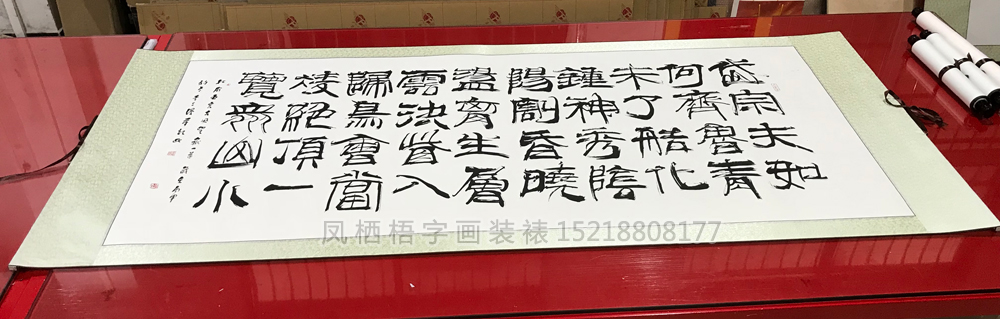 岱宗夫如
何齊魯青
未了艁化
鍾神秀陰
陽割昏曉
盪胷生層
雲決眥入
歸鳥會當
凌絕頂一
覽衆山小
凤栖梧字画装裱15218808177